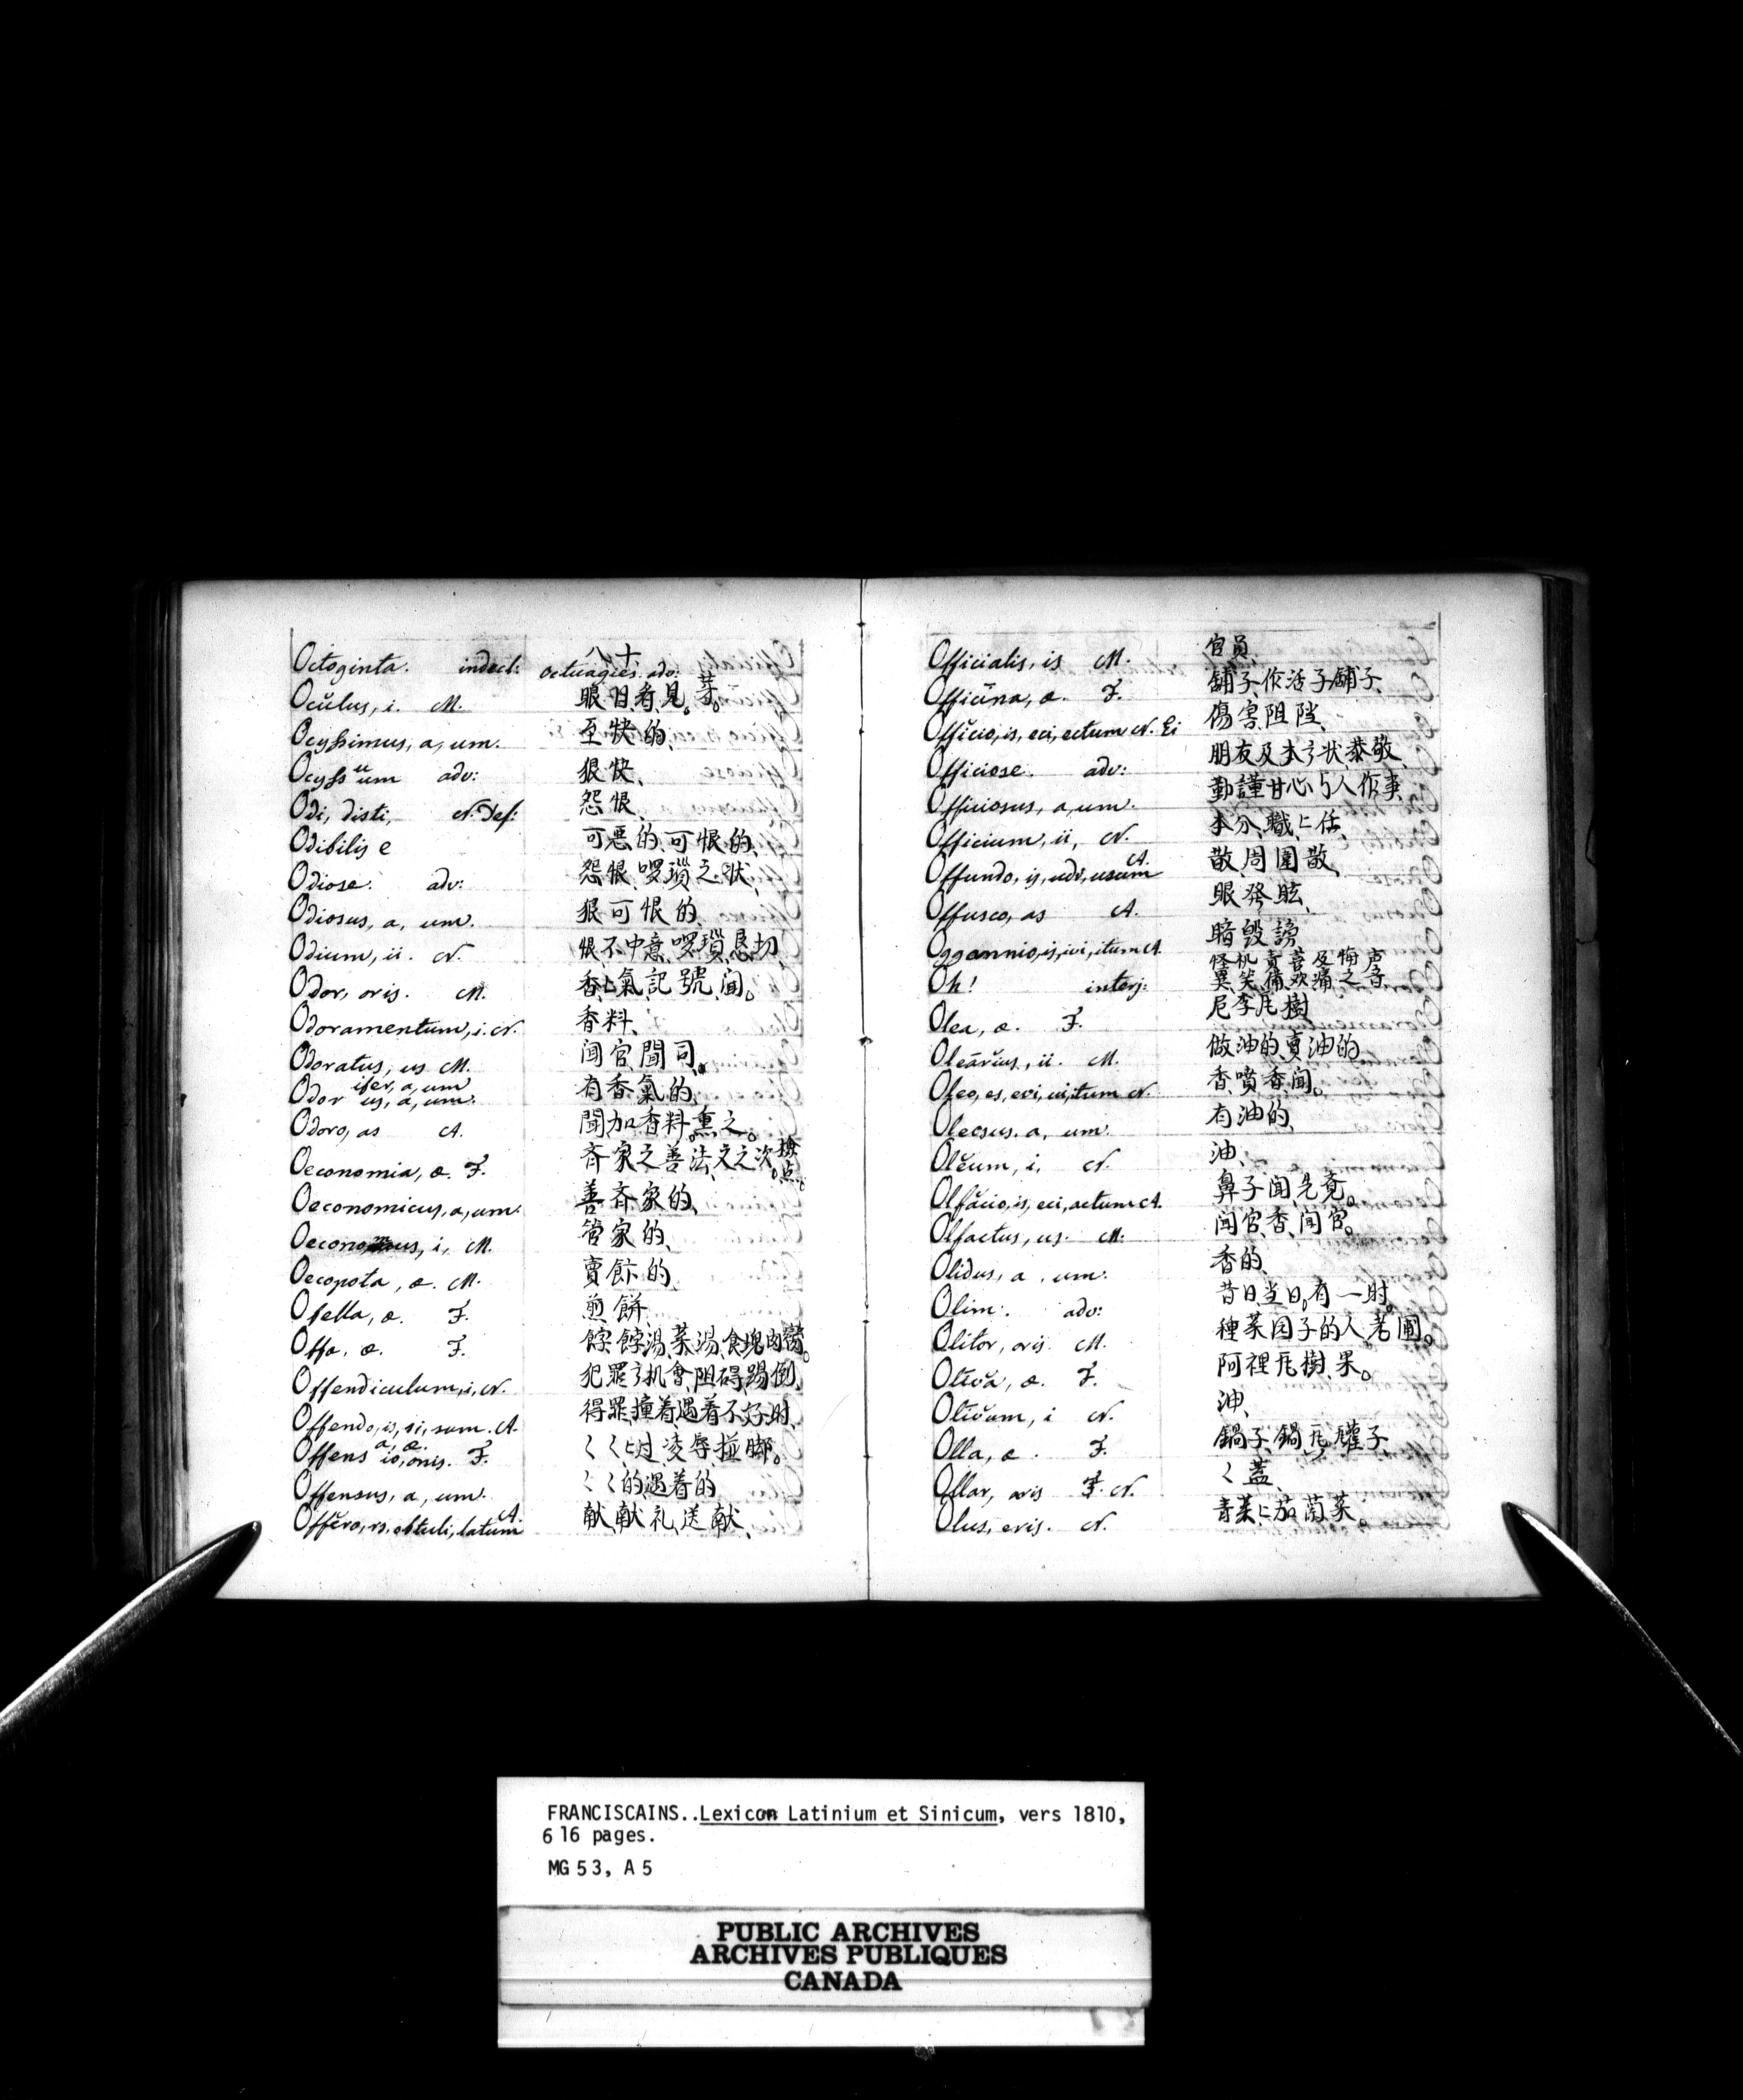 Octoginta. indecl: 八十 octuagies. adv:
Ocŭlus, i. M. 眼目、看見。芽。
Ocyssimus, a, um. 至快的、
Ocyss u um adv: 狠快、
Odi, disti, N. Def: 怨恨
Odibilis e 可惡的、可恨的、
Odiose. adv: 怨恨、啰瑣之状、
Odiosus, a, um. 狠可恨的、
Odium, ii. N. 恨、不中意、啰瑣、恳切、
Odor, oris. M. 香氣、記號、闻。
Odoramentum, i. N. 香料、
Odoratus, us M. 闻官、聞司。
Odor ifer, a, um us, a, um. 有香氣的、
Odoro, as A. 聞、加香料。熏之。
Oeconomia, æ. F. 齐家之善法、文之次。
Oeconomicus, a, um. 善齐家的、
Oeconomus, i, M. 管家的、
Oecopota, æ. M. 賣的、
Ofella, æ. F. 煎餅、
Offa, æ. F. 餑餑湯、菜湯、食塊、肉
Offendiculum, i, N. 犯罪机會、阻碍、踢倒、
Offendo, is, si, sum. A. 得罪、撞着、遇着不好时、
Offens a, æ. io, onis. F. 过、凌辱、脚。
Offensus, a, um. 的、遇着的
Offĕro, rs, obtuli, latum A. 献、献礼、送献、
Officialis, is M. 官員、
Officīna, æ. F. 舖子、作活子舖子、
Officio, is, eci, ectum N. Ei 傷害、阻
Officiose. adv: 朋友及本状、恭敬、
Officiosus, a, um. 勤謹甘心与人作事、
Officium, ii, N. 本分、職任、
Offundo, is, udi, usum A. 散、周圍散、
Offusco, as A. 眼發眩、
Oggannio, is, ivi, itum A. 暗毁謗、
Oh! interj: 怪机責喜及悔声
異笑痛之音
Olea, æ. F. 樹
Oleārĭus, ii. M. 做油的、賣油的
Oleo, es, evi, ui, itum N. 香噴香、闻。
Oleosus. a, um. 有油的、
Olĕum, i, N. 油、
Olfăcio, is, eci, actum A. 鼻子闻、先竟。
Olfactus, us. M. 闻官、香、闻官。
Olidus, a, um. 香的、
Olim. adv: 昔日、当日。有一时。
Olitor, oris. M. 種菜园子的人、老圃。
Olīvă, æ. F. 阿裡樹、果。
Olīvum, i N. 油、
Olla, æ. F. 鍋子、鍋、罐子、
Ollar, aris F. N. 盖、
Olus, eris. N. 青菜、茄菜。
FRANCISCAINS..Lexicon Latinium et Sinicum, vers 1810,
616 pages.
MG 53, A 5
PUBLIC ARCHIVES
ARCHIVES PUBLIQUES
CANADA